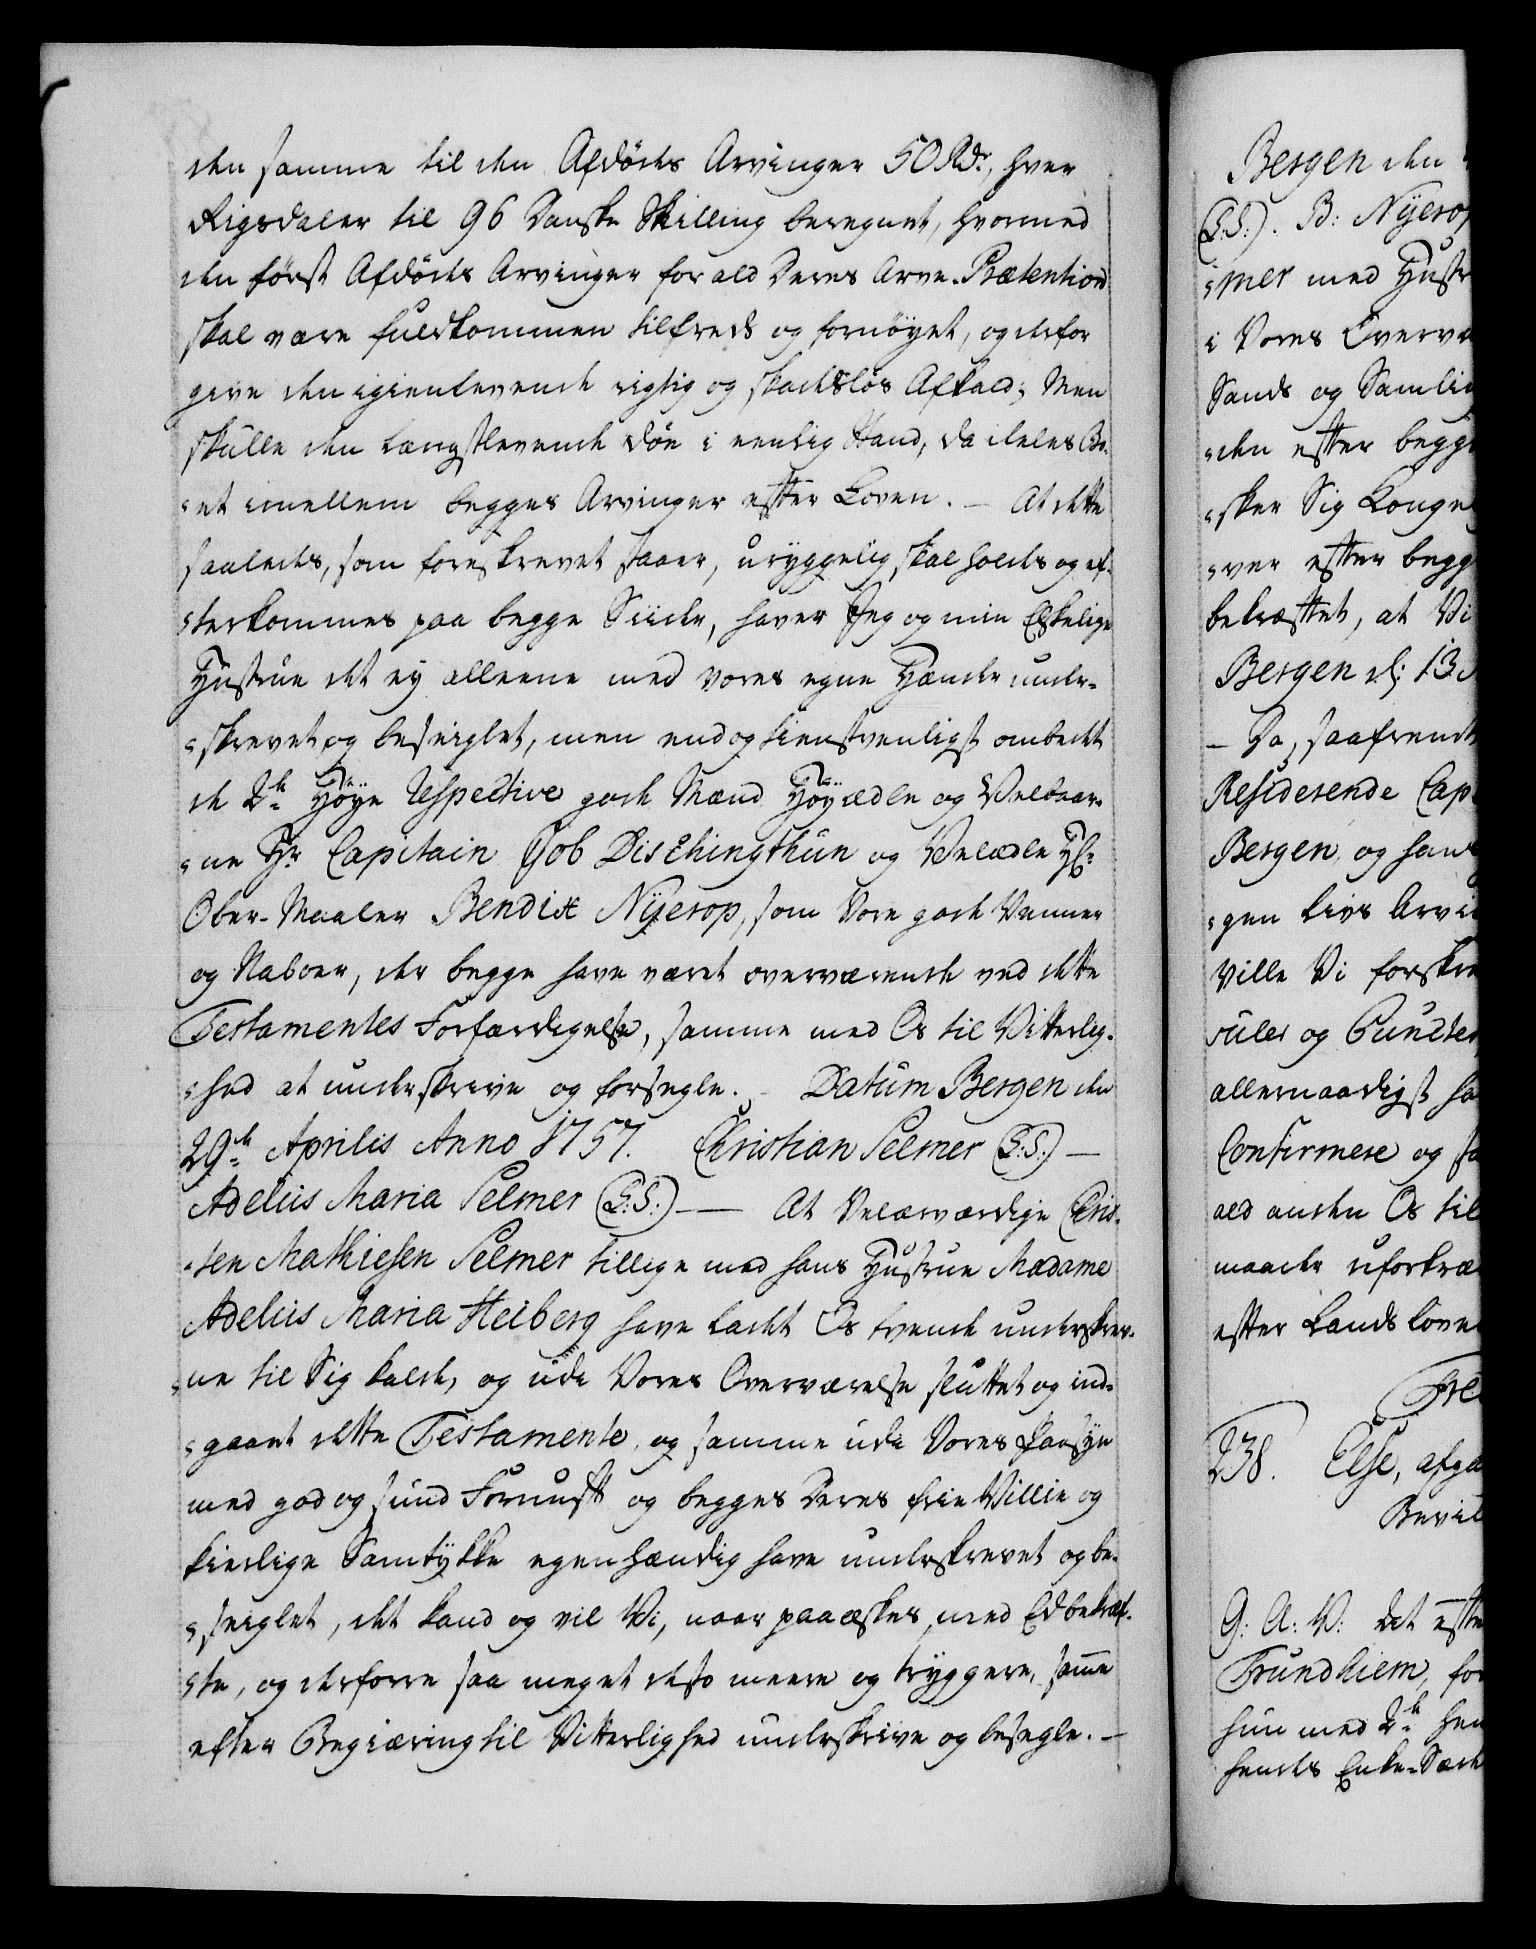 den samme til den Afdödes Arvinger 50 Rdr, hver
Rigsdaler til 96 Danske Skilling beregnet, hvormed
den först Afdödes Arvinger for ald Deres Arve-Prætention
skal være fuldkommen tilfreds og fornöyet, og derfor
give den igienlevende rigtig og skadeslös Afkald; Men
skulle den længstlevende döe i eenlig Stand, da deeles Bo-
-et imellem begges Arvinger efter Loven. — At dette
saaledes, som foreskrevet staaer, uryggelig skal holdes og ef-
-terkommes paa begge Siider, haver Jeg og min Elskelige
Hustrue det ey alleene med vores egne Hænder under-
-skrevet og beseiglet, men end og tienstvenligst ombedet
de 2de Höye Respective gode Mænd Höyædle og Velbaar-
-ne Hr Capitain Job Dischingthun og Velædle Hr
Ober-Maaler Bendix Nÿerop, som Vore gode Venner
og Naboer, der begge have været overværende ved dette
Testamentes Forfærdigelse, samme med Os til Vitterlig-
-hed at underskrive og forsegle. — Datum Bergen den
29de Aprilis Anno 1757. Christian Selmer (L:S:) —
Adelus Maria Selmer (L:S:) — At Velærværdige Chris-
-ten Mathiesen Selmer tillige med hans Hustrue Madame
Adelus Maria Heiberg have ladet Os tvende underskrev-
-ne til Sig kalde, og udi Vores Overværelse sluttet og ind-
-gaaet dette Testamente, og samme udi Vores Paasÿn
med god og sund Fornuft og begges Deres frie Villie og
kierlige Samtÿkke egenhændig have underskrevet og be-
-seiglet, det kand og vil Vi, naar paaæskes, med Ed bekræf-
-te, og derforre saa meget desto meere og trÿggere, samme
efter Begiæring til Vitterlighed underskrive og besegle. —
Bergen den
(L:S:). B: Nÿerop
-mer med Hustr
i Vores Overvæ
Sands og Samlig
-den efter begge
-sker Sig Longe
-ver efter begg
bekræftet, at Vi
Bergen d: 13
— Da, saafremt
Residerende Cap
Bergen, og hans
-gen Livs Arvi
Ville Vi forskre
suler og Puncter
allernaadigst ha
Confirmere og sta
ald anden Os til
maader uforkræ
efter Landsloven
Fre
238. Else, afga
Bevil
G: A: V: Det efter
Trundhiem, for
hun med 2de hen
hendes Enke-Sæde